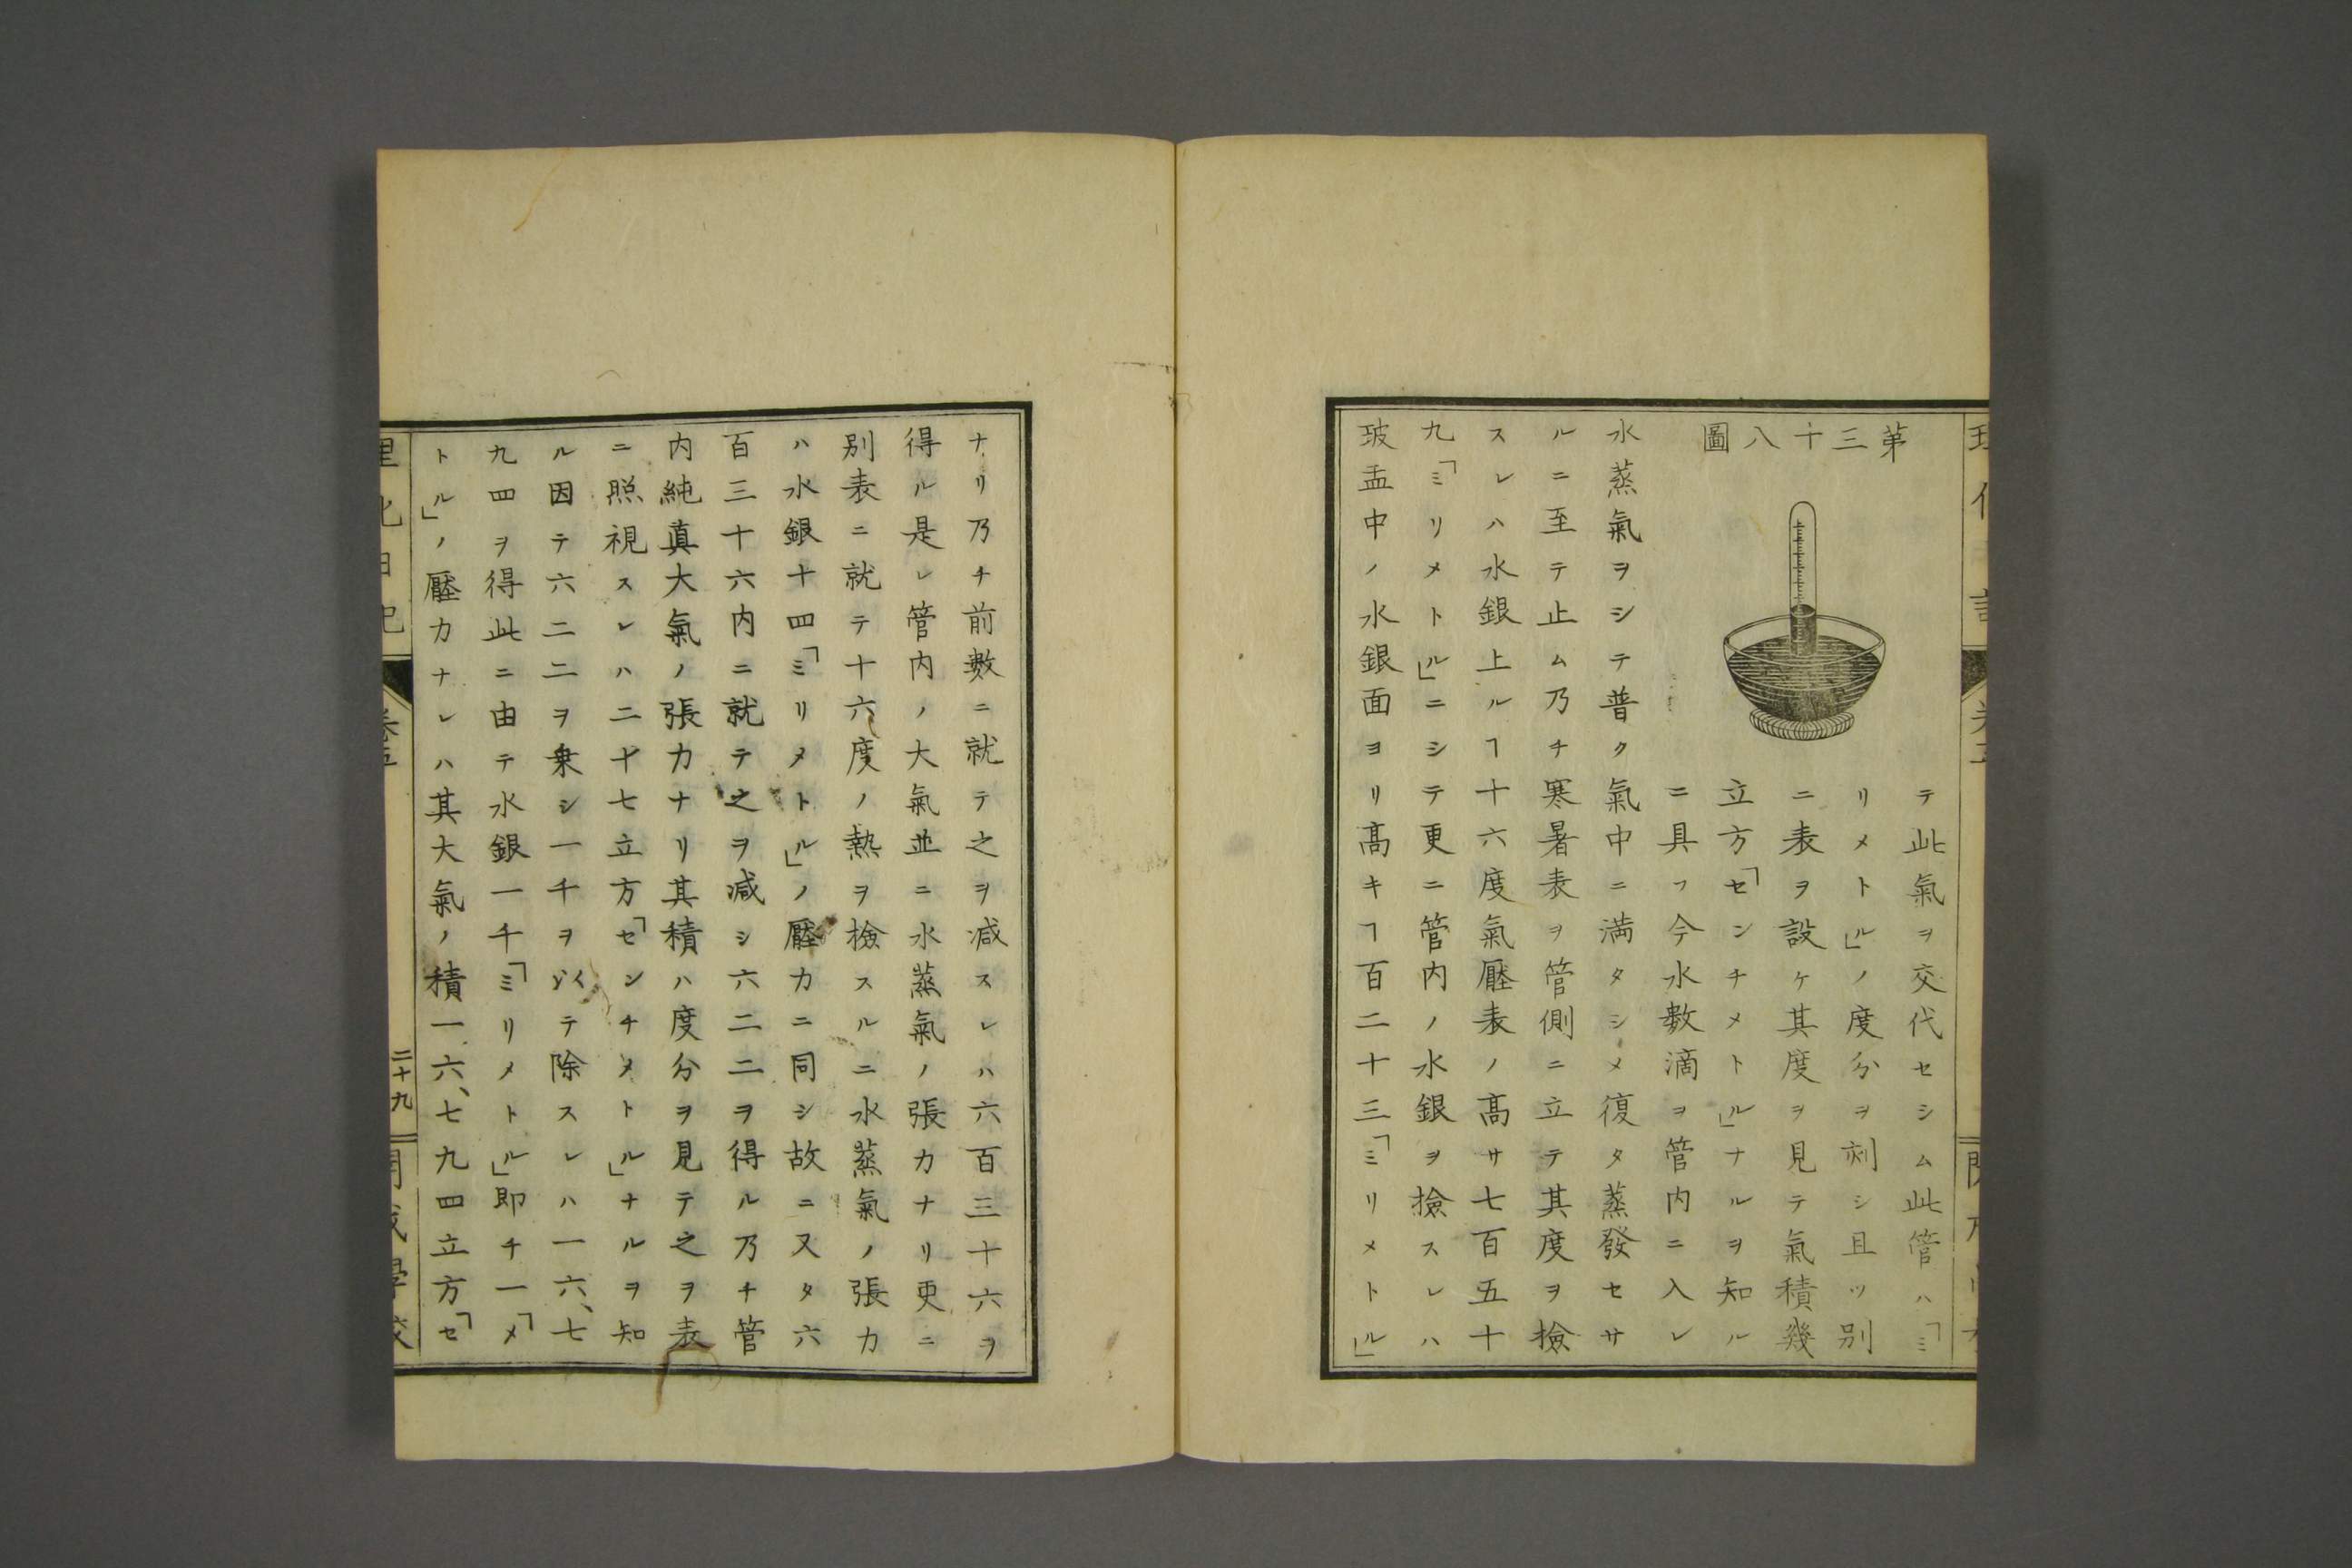 第三十八圖
テ此氣ヲ交代セシム此管ハ「ミ
リメトル」ノ度分ヲ刻シ且ツ別
ニ表ヲ設ケ其度ヲ見テ氣積幾
立方「センチメトル」ナルヲ知ル
ニ具フ今水数滴ヲ管内ニ入レ
水蒸氣ヲシテ普ク氣中ニ満タシメ復タ蒸發セサ
ルニ至テ止ム乃チ寒暑表ヲ管側ニ立テ其度ヲ檢
スレハ水銀上ルヿ十六度氣壓表ノ髙サ七百五十
九「ミリメトル」ニシテ更ニ管内ノ水銀ヲ撿スレハ
玻盂中ノ水銀面ヨリ髙キヿ百二十三「ミリメトル」
ナリ乃チ前數ニ就テ之ヲ減スレハ六百三十六ヲ
得ル是レ管内ノ大氣並ニ水蒸氣ノ張力ナリ更ニ
別表ニ就テ十六度ノ熱ヲ檢スルニ水蒸氣ノ張力
ハ水銀十四「ミリメトル」ノ壓力ニ同シ故ニ又タ六
百三十六内ニ就テ之ヲ減シ六二二ヲ得ル乃チ管
内純真大氣ノ張力ナリ其積ハ度分ヲ見テ之ヲ表
ニ照視スレハ二十七立方「センチメトル」ナルヲ知
ル因テ六二二ヲ乗シ一千ヲ以テ除スレハ一六、七
九四ヲ得此ニ由テ水銀一千「ミリメトル」即チ一「メ
トル」ノ壓力ナレハ其大氣ノ積一六、七九四立方「セ
二十九